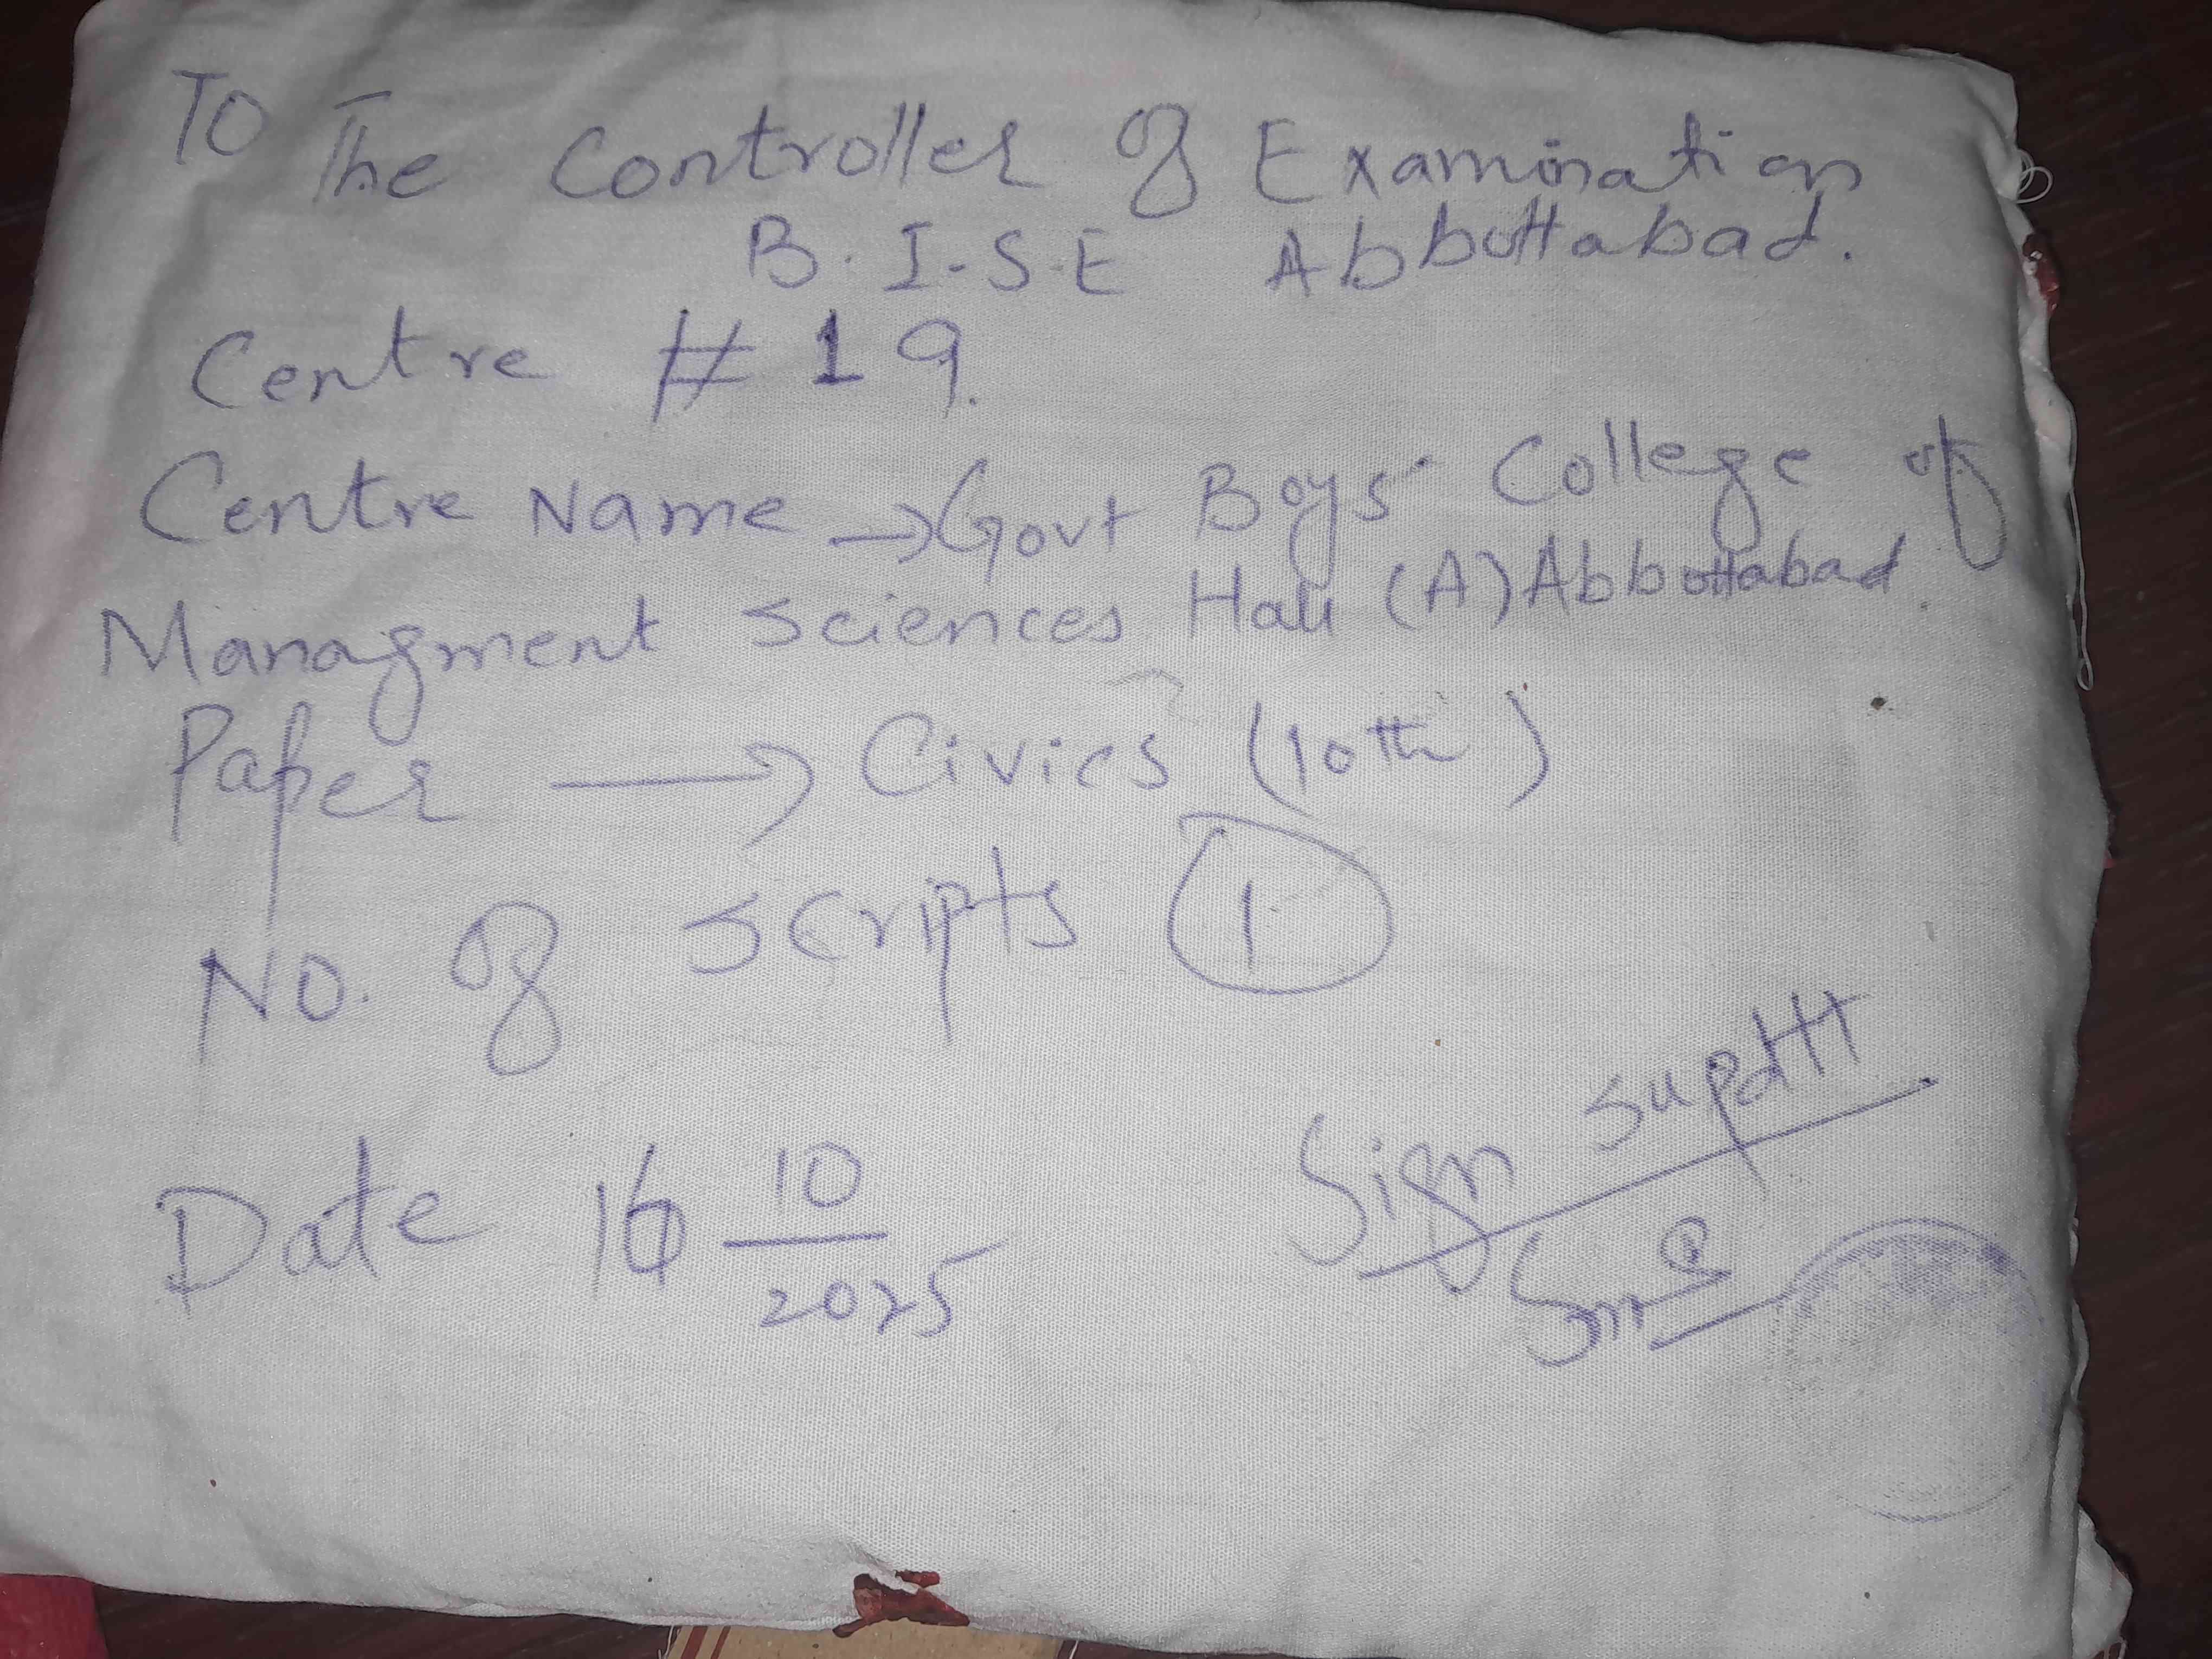 To
The Controller of Examination
B.I.S.E Abbottabad.
Centre # 19.
Centre Name → Govt Boys College of
Managment Sciences Hall (A) Abbottabad.
Paper → Civics (10th)
No. of scripts 1
Date 16 10/2025
Sign supdtt